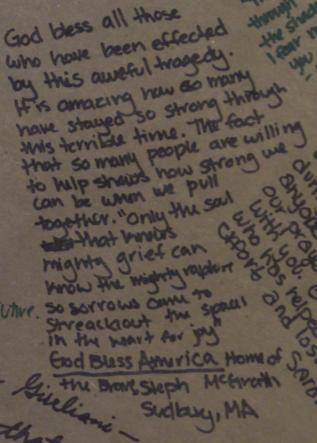 God bless all those
who have been effected
by this aweful tragedy.
It is amazing how so many
have stayed so strong through
this terrible time. The fact
that so many people are willing
to help shows how strong we
can be when we pull
together. "Only the soul
that knows
mighty grief can
know the mighty rapture
so sorrows come to
streachout the spaces
in the heart for joy"
God Bless America Home of
the Brave, Steph McGrath
Sudbury, MA
through
the shad
I fear n
you
anyon
our pray
with you.
who has helped
efforts
and los
uture.
Giuliani -
that